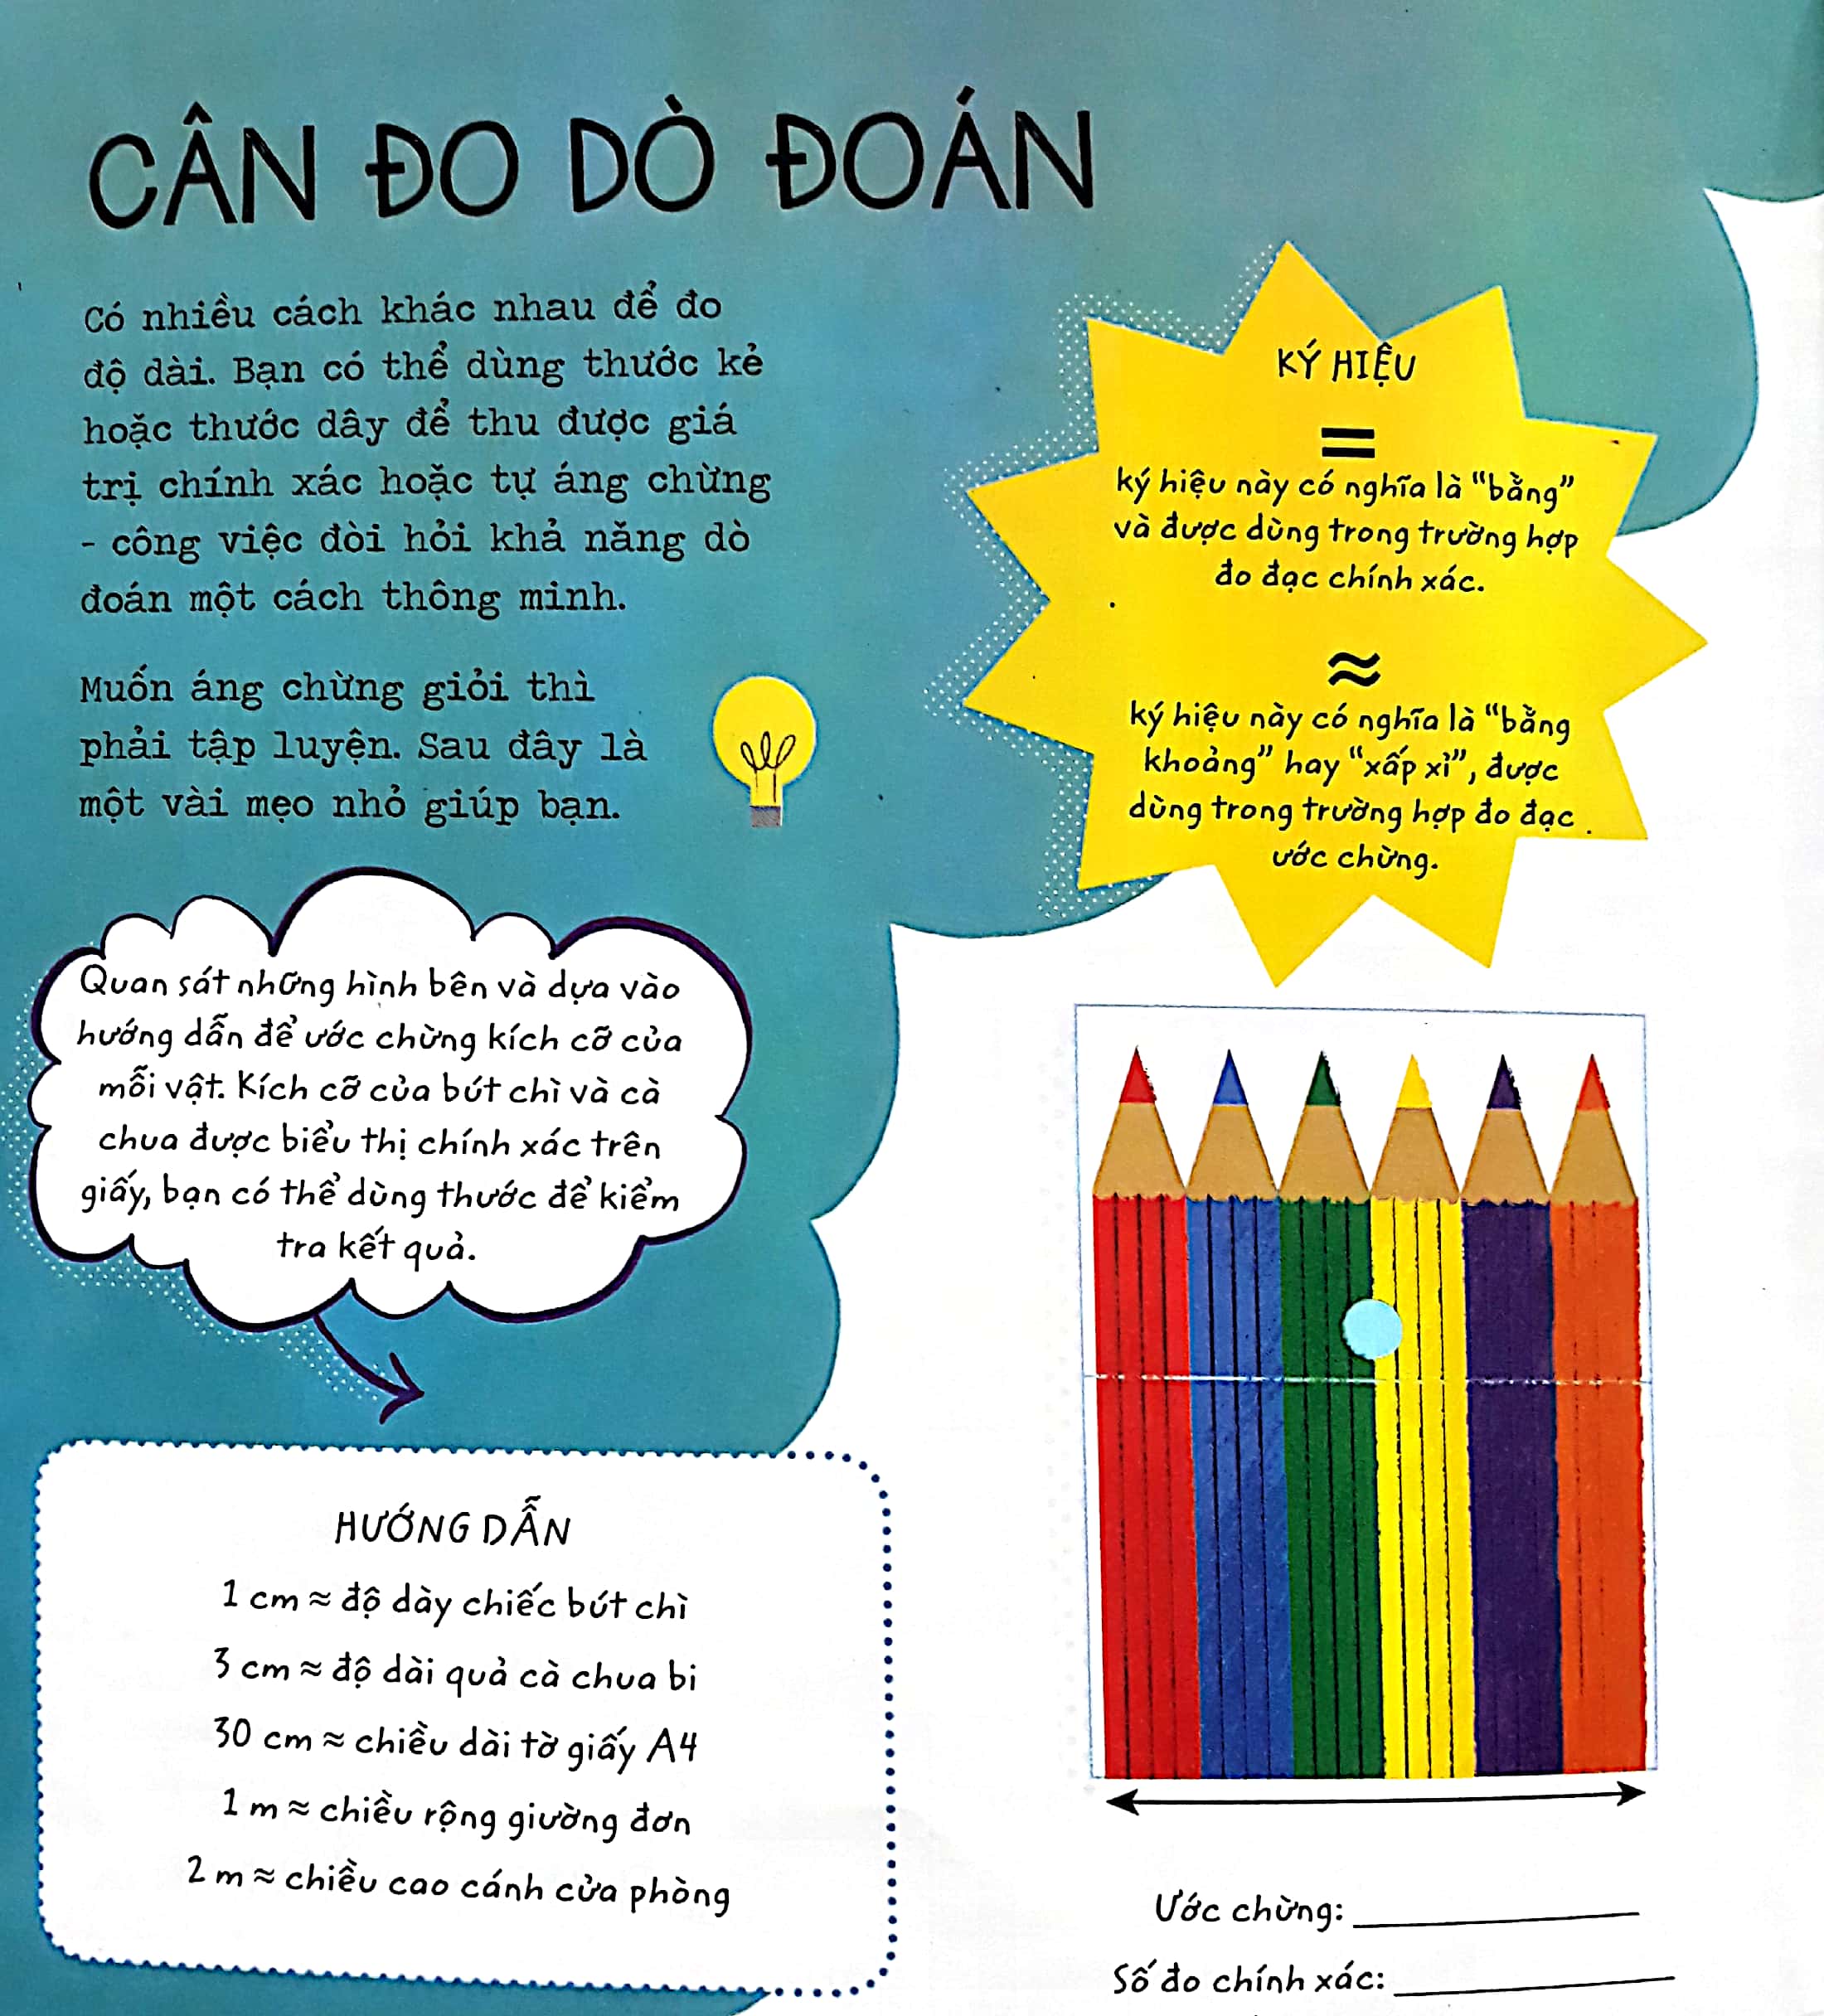 CÂN ĐO DÒ ĐOÁN
Có nhiều cách khác nhau để đo
độ dài. Bạn có thể dùng thước kẻ
hoặc thước dây để thu được giá
trị chính xác hoặc tự áng chừng
- công việc đòi hỏi khả năng dò
đoán một cách thông minh.
Muốn áng chừng giỏi thì
phải tập luyện. Sau đây là
một vài mẹo nhỏ giúp bạn.
KÝ HIỆU
=
ký hiệu này có nghĩa là “bằng”
và được dùng trong trường hợp
đo đạc chính xác.
≈
ký hiệu này có nghĩa là “bằng
khoảng” hay “xấp xỉ”, được
dùng trong trường hợp đo đạc
ước chừng.
Quan sát những hình bên và dựa vào
hướng dẫn để ước chừng kích cỡ của
mỗi vật. Kích cỡ của bút chì và cà
chua được biểu thị chính xác trên
giấy, bạn có thể dùng thước để kiểm
tra kết quả.
HƯỚNG DẪN
1 cm ≈ độ dày chiếc bút chì
3 cm ≈ độ dài quả cà chua bi
30 cm ≈ chiều dài tờ giấy A4
1 m ≈ chiều rộng giường đơn
2 m ≈ chiều cao cánh cửa phòng
Ước chừng:
Số đo chính xác: